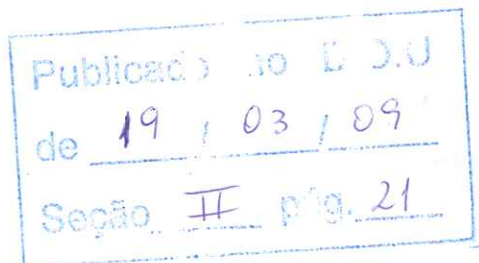 Publicado no D.O.U
de 19 / 03 / 09
Seção II pág. 21